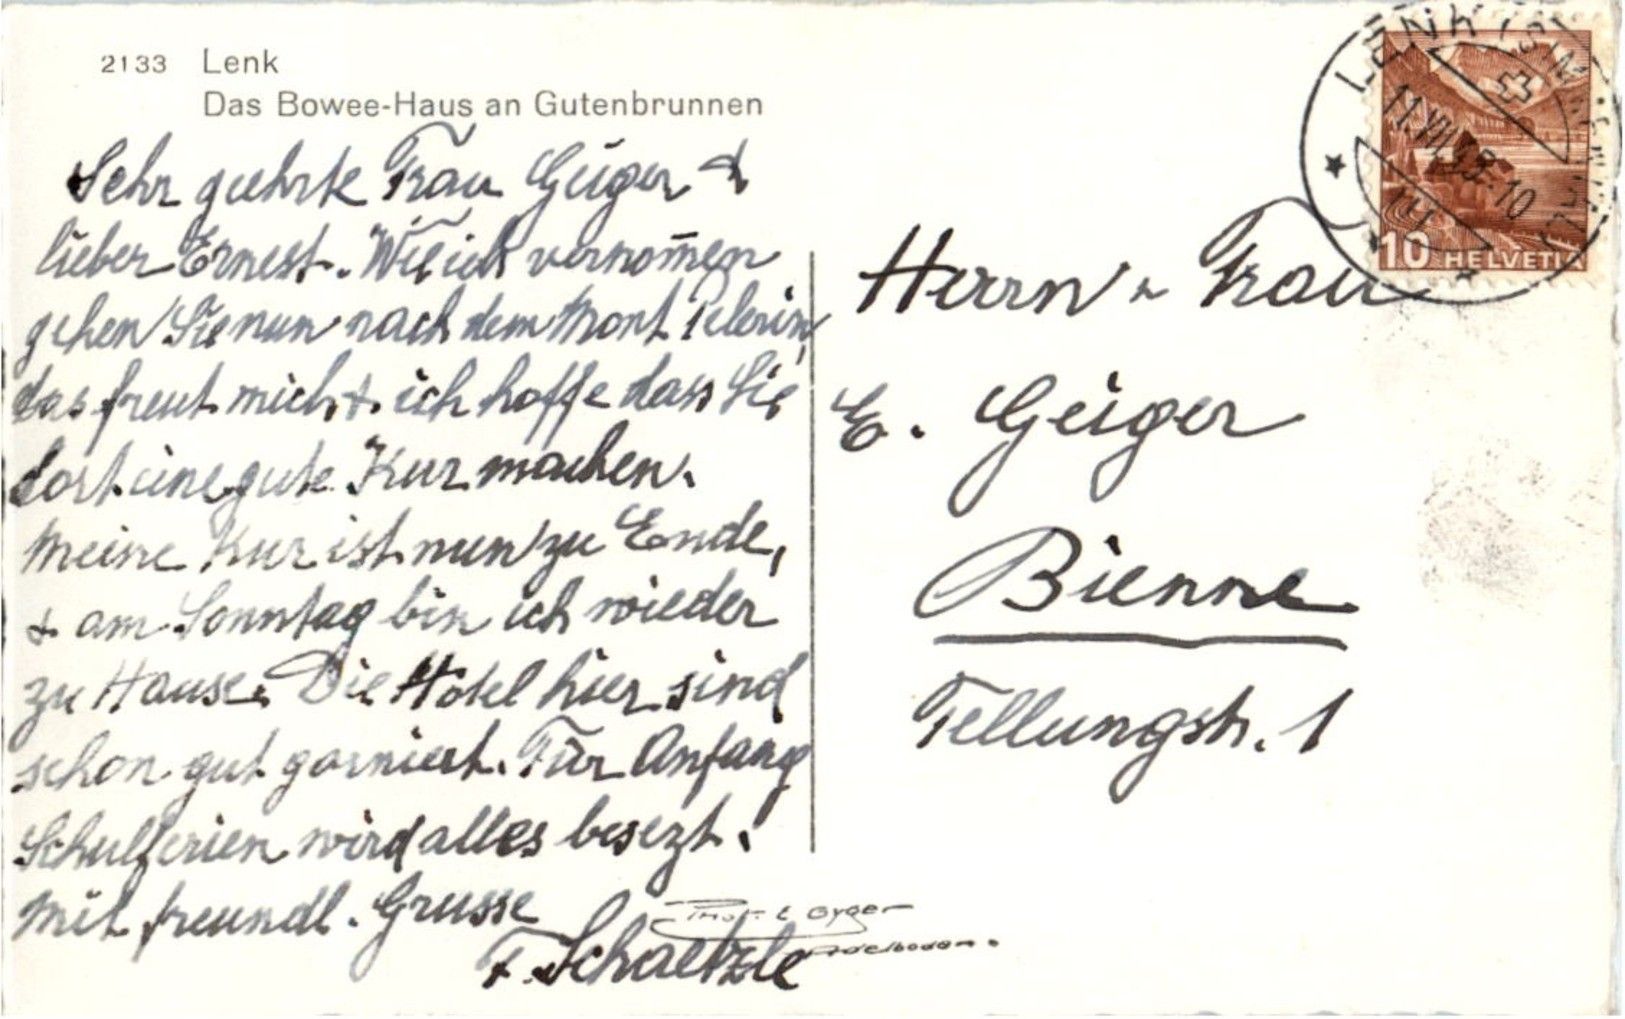 2133 Lenk
Das Bowee-Haus an Gutenbrunnen
Sehr geehrte Frau Geiger &
lieber Ernest. Wie ich vernom̄en
gehen Sie nun nach dem Mont Pelerin,
das freut mich, & ich hoffe dass Sie
dort eine gute Kur machen.
Meine Kur ist nun zu Ende,
& am Sonntag bin ich wieder
zu Hause. Die Hotel hier sind
schon gut garniert. Für Anfang
Schulferien wird alles besezt.
Mit freundl. Grusse
F. Schaetzle
Phot. E Gyger
Adelboden.
LENK (SIMMENTAL)
10 HELVETIA
Herrn & Frau
E. Geiger
Bienne
Tellungstr. 1